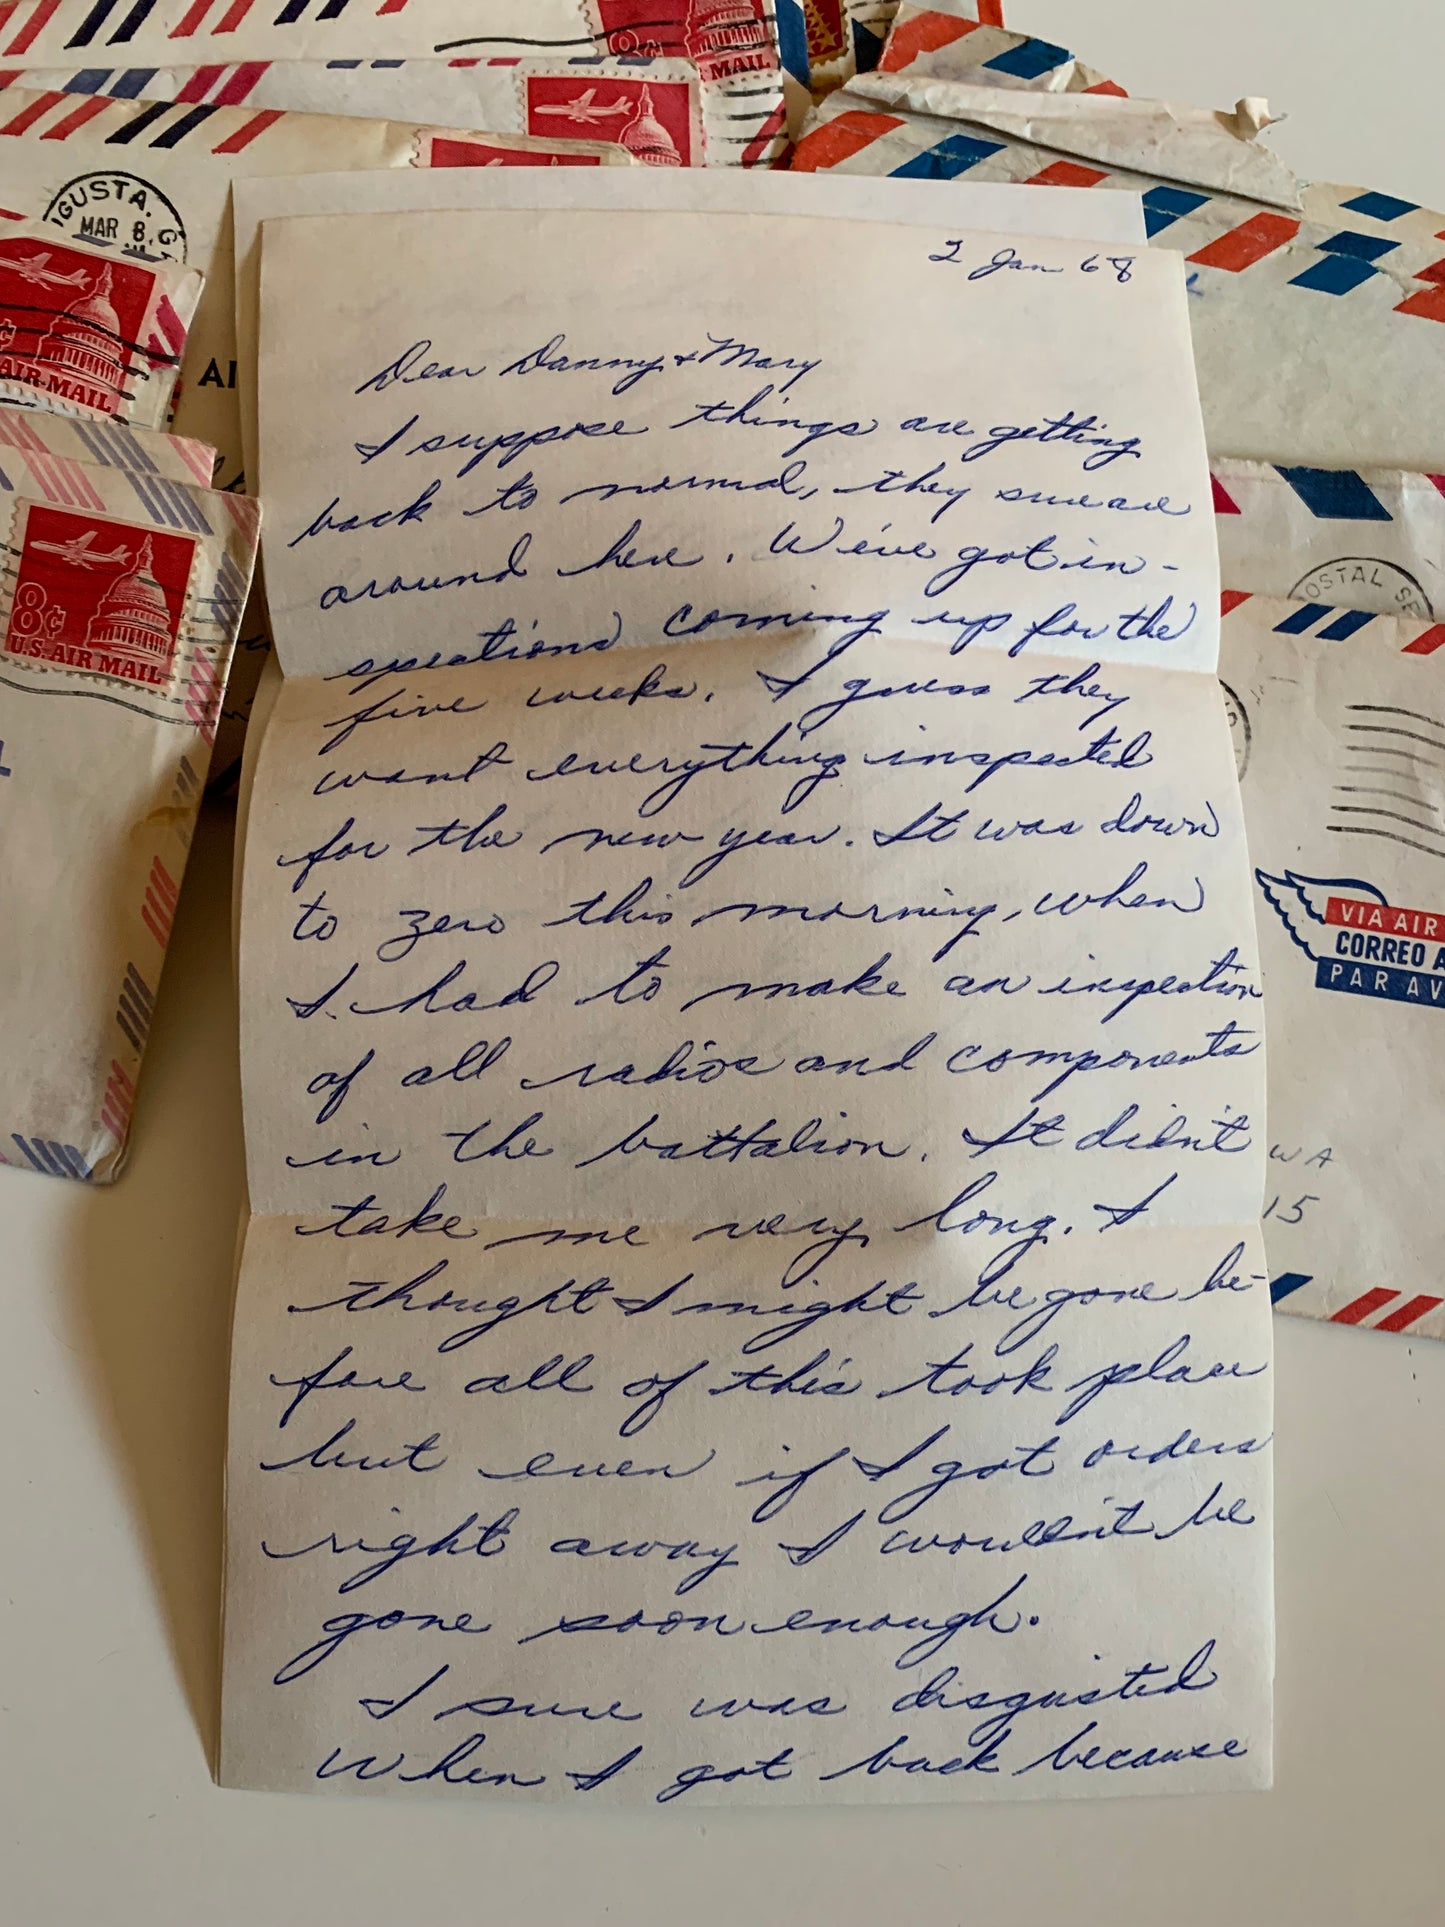 8¢
MAIL
IGUSTA. GA
MAR 8,
AIR MAIL
AI
8¢
U.S. AIR MAIL
2 Jan 68
Dear Danny + Mary
I suppose things are getting
back to normal, they sure are
around here. We've got in-
spections coming up for the
five weeks. I guess they
want everything inspected
for the new year. It was down
to zero this morning, when
I had to make an inspection
of all radios and components
in the battalion. It didn't
take me very long. I
thought I might be gone be-
fore all of this took place
but even if I got orders
right away I wouldn't be
gone soon enough.
I sure was disgusted
When I got back because
OSTAL SE
VIA AIR
CORREO A
PAR AV
WA
15